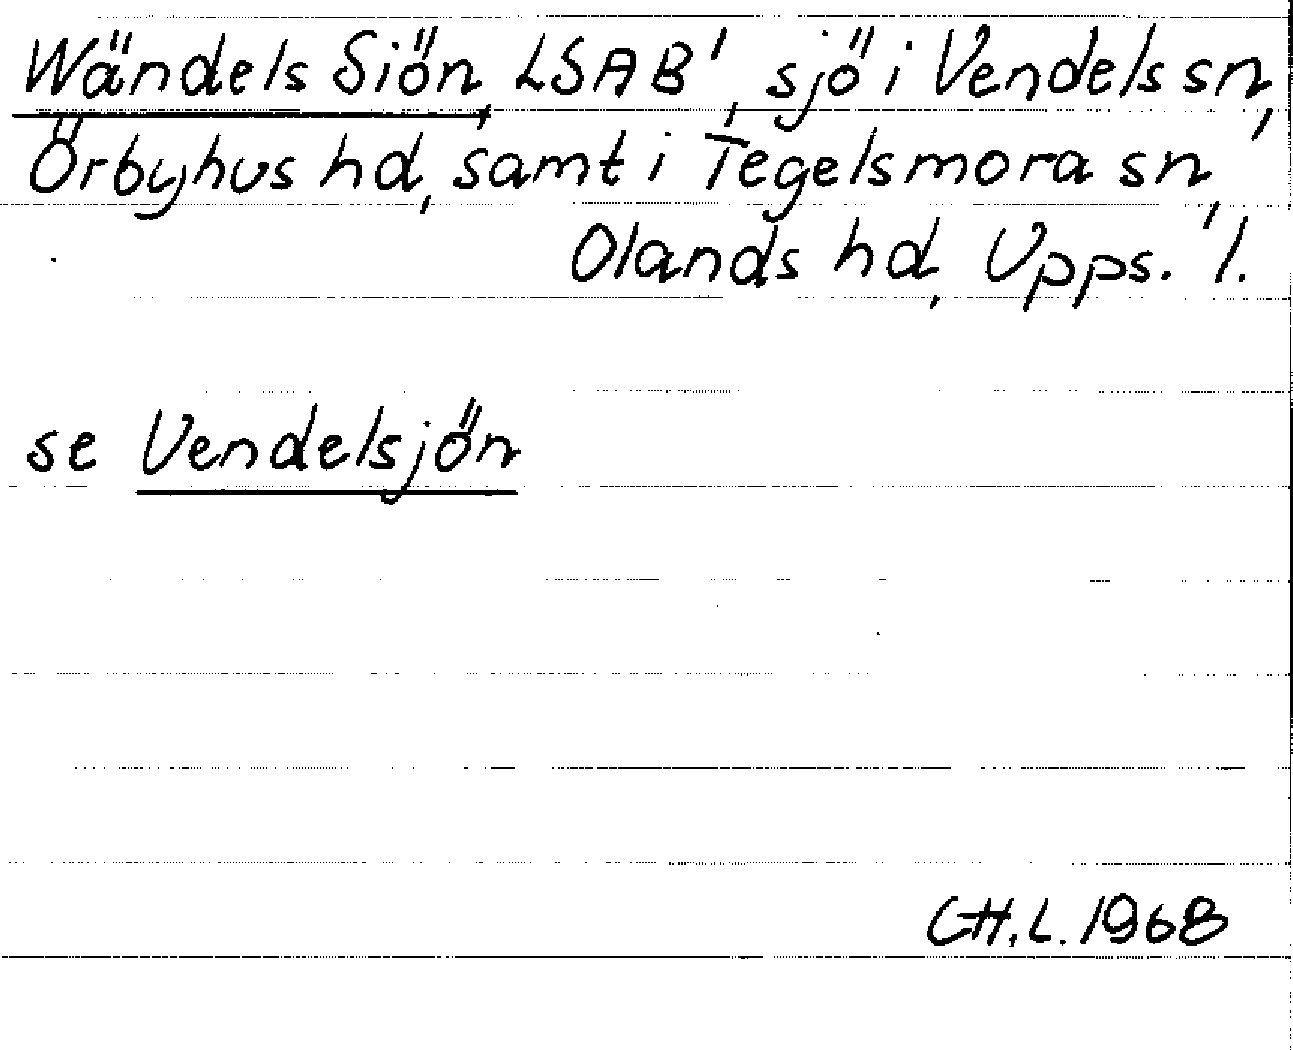 Wändels Siön, LSAB', sjö i Vendels sn,
Örbyhus hd, samt i Tegelsmora sn,
Olands hd, Upps. l.
se Vendelsjön
CH.L. 1968